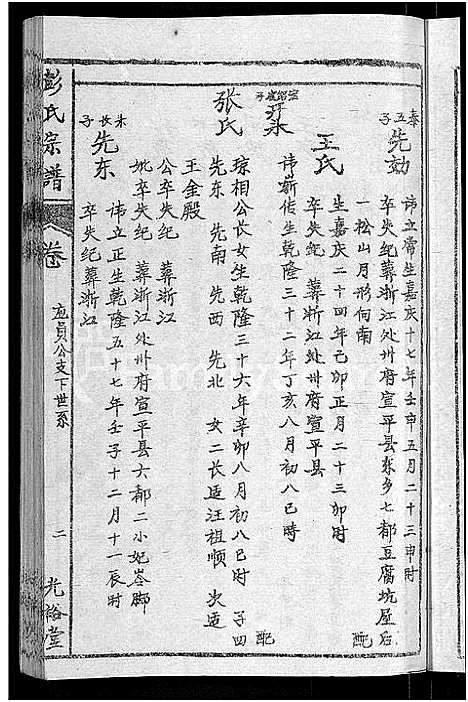 奉五子 先効
讳立常生嘉庆十七年壬申五月二十三申时
卒失纪葬浙江处州府宣平县东乡七都豆腐坑屋右
一松山月形向南 配
王氏
生嘉庆二十四年己卯正月二十三卯时
卒失纪 葬浙江处州府宣平县
讳崭传生乾隆三十二年丁亥八月初八巳时 配
张氏
琼相公长女生乾隆三十六年辛卯八月初八巳时 子四
先东 先南 先西 先北 女二长适汪祖顺 次适
王金殿
公卒失纪 葬浙江
妣卒失纪 葬浙江处州府宣平县六都二小妃岺脚
长子 先东
讳立正生乾隆五十七年壬子十二月十一辰时
卒失纪葬浙江
彭氏宗譜
卷
应贞公支下世系
二
光裕堂